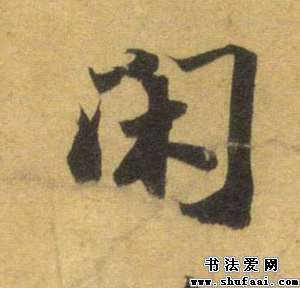 闲
书法爱网
www.shufaai.com